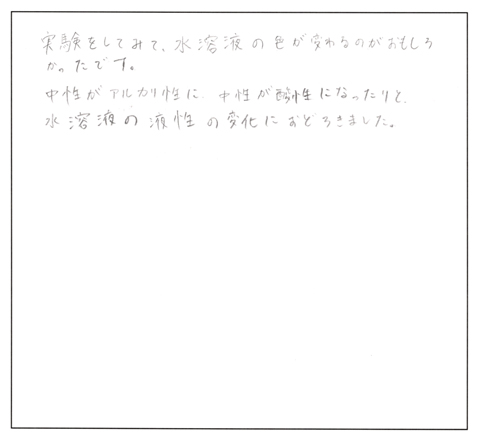 実験をしてみて、水溶液の色が変わるのがおもしろ
かったです。
中性がアルカリ性に、中性が酸性になったりと、
水溶液の液性の変化におどろきました。